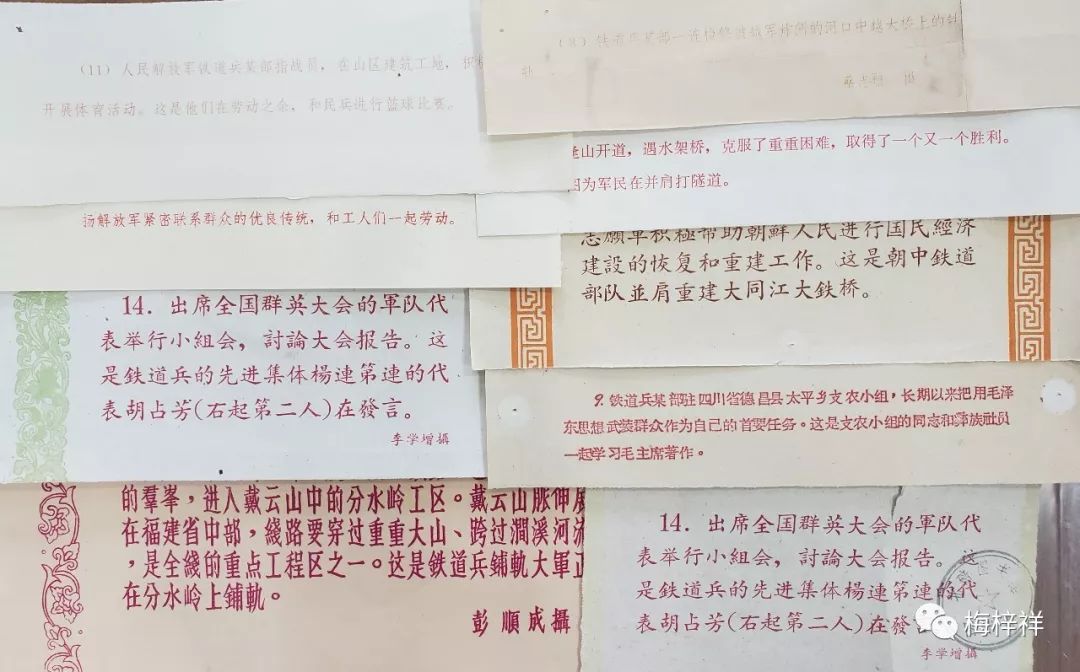 (11) 人民解放军铁道兵某部指战员，在山区建筑工地，积
开展体育活动。这是他们在劳动之余，和民兵进行篮球比赛。
(8) 铁道兵某部一连抢修被敌军炸倒的河口中越大桥上的钢
山开道，遇水架桥，克服了重重困难，取得了一个又一个胜利。
因为军民在并肩打隧道。
扬解放军紧密联系群众的优良传统，和工人们一起劳动。
志願軍积極帮助朝鮮人民进行国民經济
建設的恢复和重建工作。这是朝中鉄道
部队並肩重建大同江大鉄桥。
14．出席全国群英大会的軍队代
表举行小組会，討論大会报告。这
是鉄道兵的先进集体楊連第連的代
表胡占芳(右起第二人)在發言。
李学增攝
9. 铁道兵某部驻四川省德昌县太平乡支农小组，长期以来把用毛泽
东思想武装群众作为自己的首要任务。这是支农小组的同志和彝族社员
一起学习毛主席著作。
的羣峯，进入戴云山中的分水岭工区。戴云山脉伸展
在福建省中部，綫路要穿过重重大山、跨过澗溪河流
，是全綫的重点工程区之一。这是鉄道兵鋪軌大軍正
在分水岭上鋪軌。
彭順成攝
14．出席全国群英大会的軍队代
表举行小組会，討論大会报告。这
是鉄道兵的先进集体楊連第連的代
表胡占芳(右起第二人)在發言
李学增攝
梅梓祥